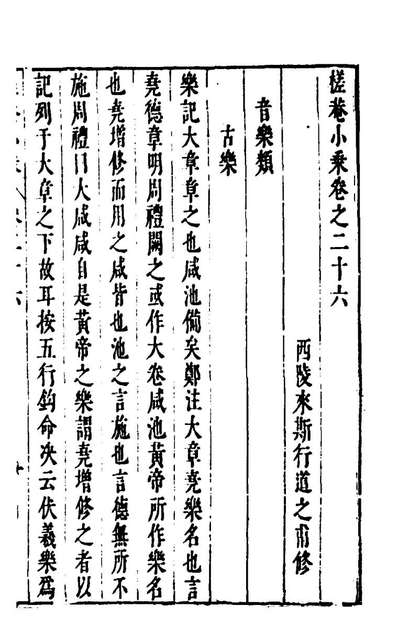 槎菴小乘卷之二十六
西陵來斯行道之甫修
音樂類
古樂
樂記大章章之也咸池備矣鄭注大章堯樂名也言
堯德章明周禮闕之或作大卷咸池黃帝所作樂名
也堯增修而用之咸皆也池之言施也言德無所不
施周禮曰大咸咸自是黃帝之樂謂堯增修之者以
記列于大章之下故耳按五行鈎命决云伏羲樂爲